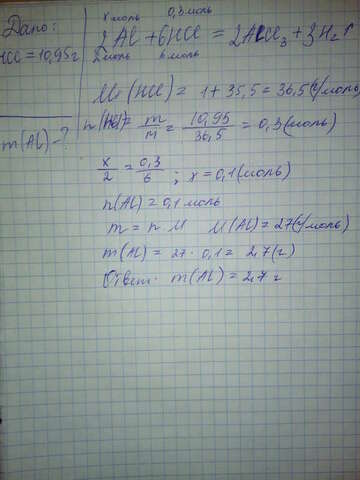 Дано:
HCl = 10,95 г
m(Al) - ?
x моль 0,3 моль
2Al + 6HCl = 2AlCl₃ + 3H₂↑
2 моль 6 моль
Mr (HCl) = 1 + 35,5 = 36,5 (г/моль)
n(HCl) = m/M = 10,95/36,5 = 0,3 (моль)
x/2 = 0,3/6 ; x = 0,1 (моль)
n(Al) = 0,1 моль
m = n · M M(Al) = 27 (г/моль)
m(Al) = 27 · 0,1 = 2,7 (г)
Ответ: m(Al) = 2,7 г